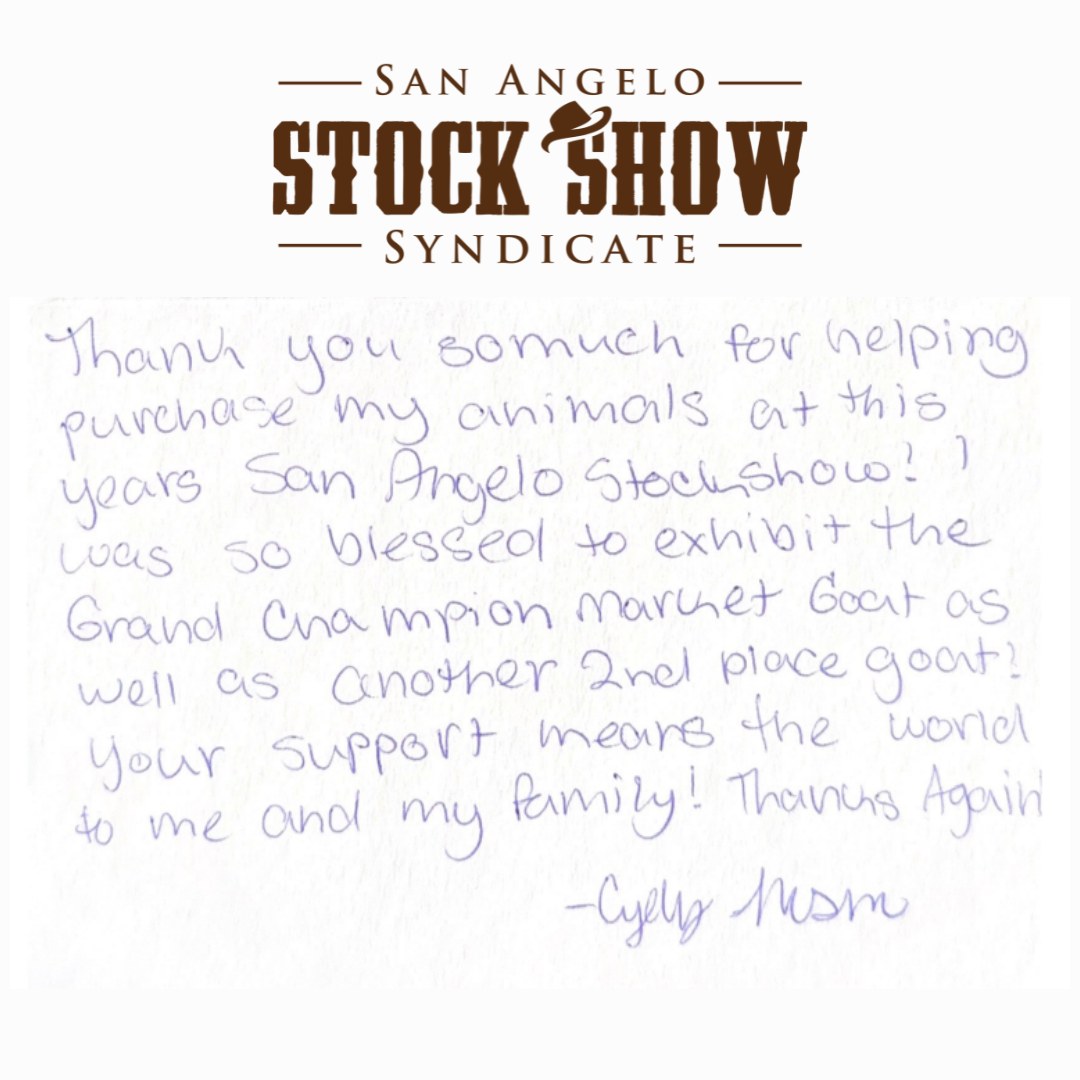 SAN ANGELO
STOCK SHOW
SYNDICATE
Thank you somuch for helping
purchase my animals at this
years San Angelo Stockshow! I
was so blessed to exhibit the
Grand Champion Market Goat as
well as another 2nd place goat!
Your support means the world
to me and my family! Thanks Again